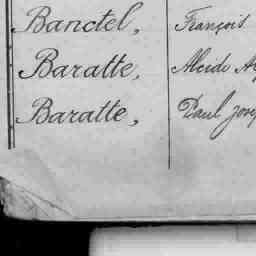 Banctel, François
Baratte, Alcide
Baratte, Paul